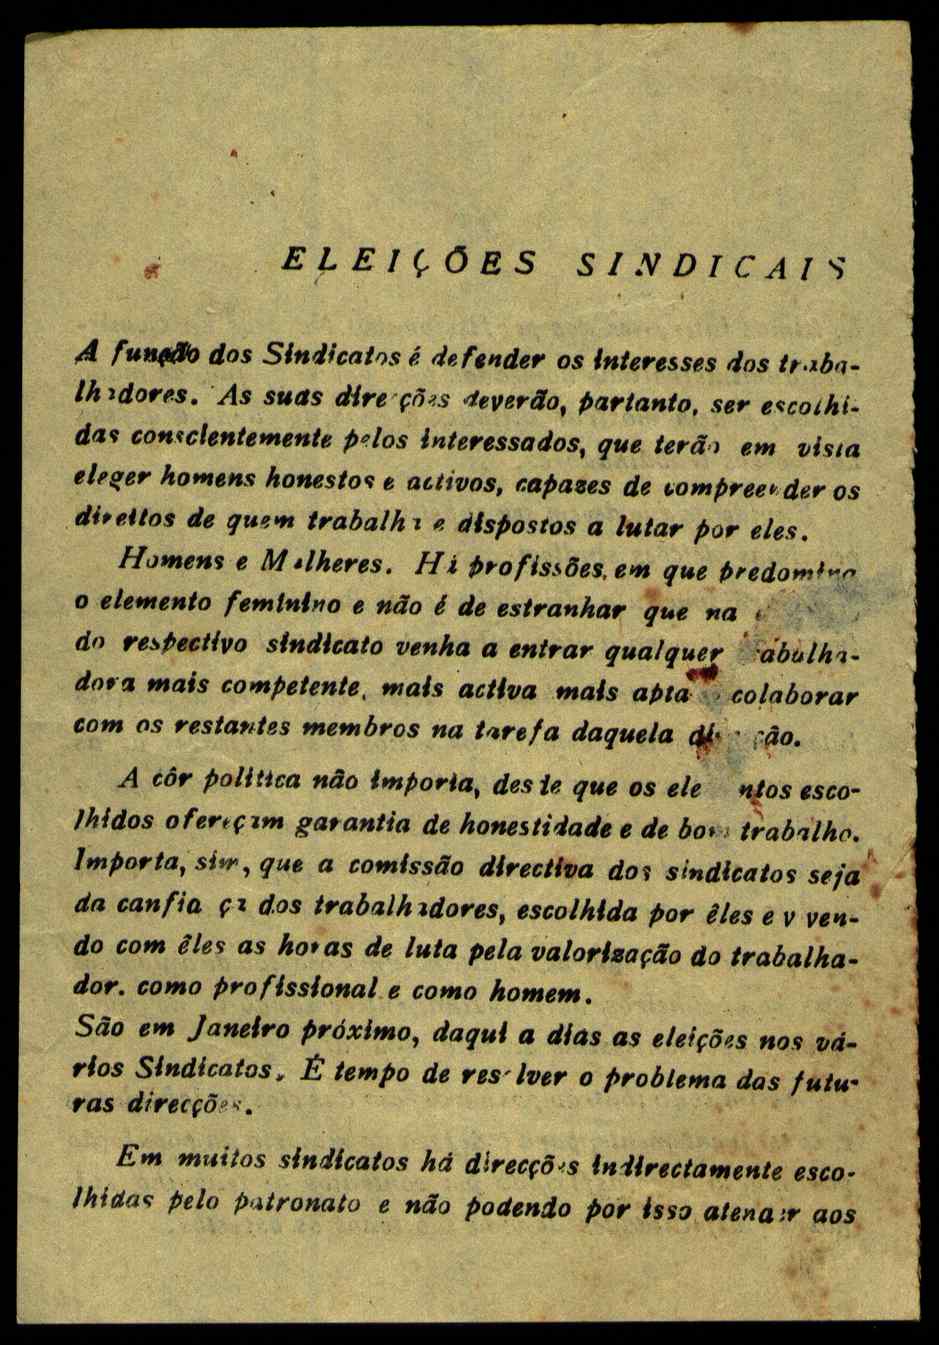 ELEIÇÕES SINDICAIS
A função dos Sindicatos é defender os interesses dos traba-
lhadores. As suas direcções deverão, partanto, ser escolhi-
das conscientemente pelos interessados, que terão em vista
eleger homens honestos e activos, capazes de compreender os
direitos de quem trabalha e dispostos a lutar por eles.
Homens e Mulheres. Há profissões, em que predomina
o elemento feminino e não é de estranhar que na
do respectivo sindicato venha a entrar qualquer trabalha-
dora mais competente, mais activa mais apta colaborar
com os restantes membros na tarefa daquela direcção.
A côr politica não importa, desde que os elementos esco-
lhidos ofereçam garantia de honestidade e de bom trabalho.
Importa, sim, que a comissão directiva dos sindicatos seja
da canfiança dos trabalhadores, escolhida por êles e viven-
do com êles as horas de luta pela valorização do trabalha-
dor. como profissional e como homem.
São em Janeiro próximo, daqui a dias as eleições nos vá-
rios Sindicatos. É tempo de resolver o problema das futu-
ras direcções.
Em muitos sindicatos há direcções indirectamente esco-
lhidas pelo patronato e não podendo por isso atender aos